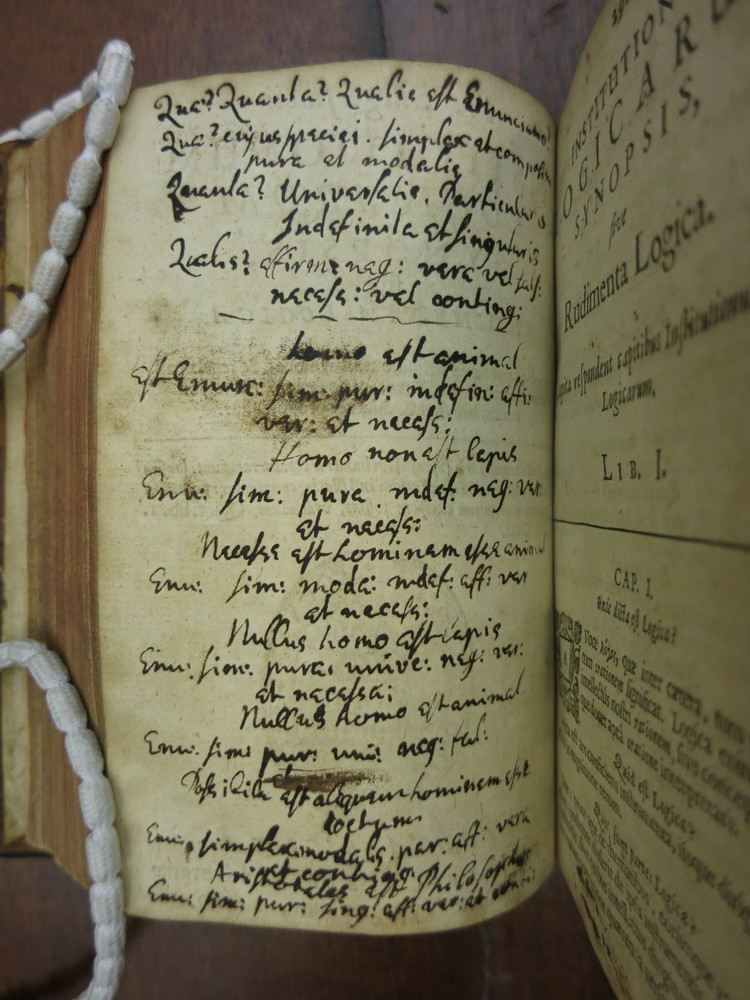 Qua? Quanta? Qualis est Enunciatio?
Qua? cujus speciei. simplex et composita
pura et modalis
Quanta? Universalis. Particularis
Indefinita et singularis
Qualis? affirm: neg: vera vel fals:
necess: vel conting:
homo est animal
Est Enunc: sim: pur: indefin: affi:
ver: et necess:
Homo non est lapis
Enu: sim: pura indef: neg: ver
et necess:
Necesse est hominem esse animal
Enu: sim: moda: indef: aff: ver
et necess:
Nullus homo est lapis
Enu: sim: pura: unive: neg: ver:
et necessa:
Nullus homo est animal
Enu: sim: pur: uni: neg: fal:
Possibile est aliquem hominem esse
doctum
Enu: simplex modalis par: aff: vera
et conting:
Aristoteles est Philosophus
Enu: sim: pur: sing: aff: ver: et
INSTITUTION
LOGICARU
SYNOPSIS,
sive
Rudimenta Logica.
respondent capitibus Institutionum
Logicarum.
LIB. I.
CAP. I.
Unde dicta est Logica?
voce λόγος, quæ inter cætera,
rationem significat. Logica enim
intellectus nostri rationem, sive
apta oratione interpretatur.
Quid est Logica?
Quot sunt partes Logicæ?